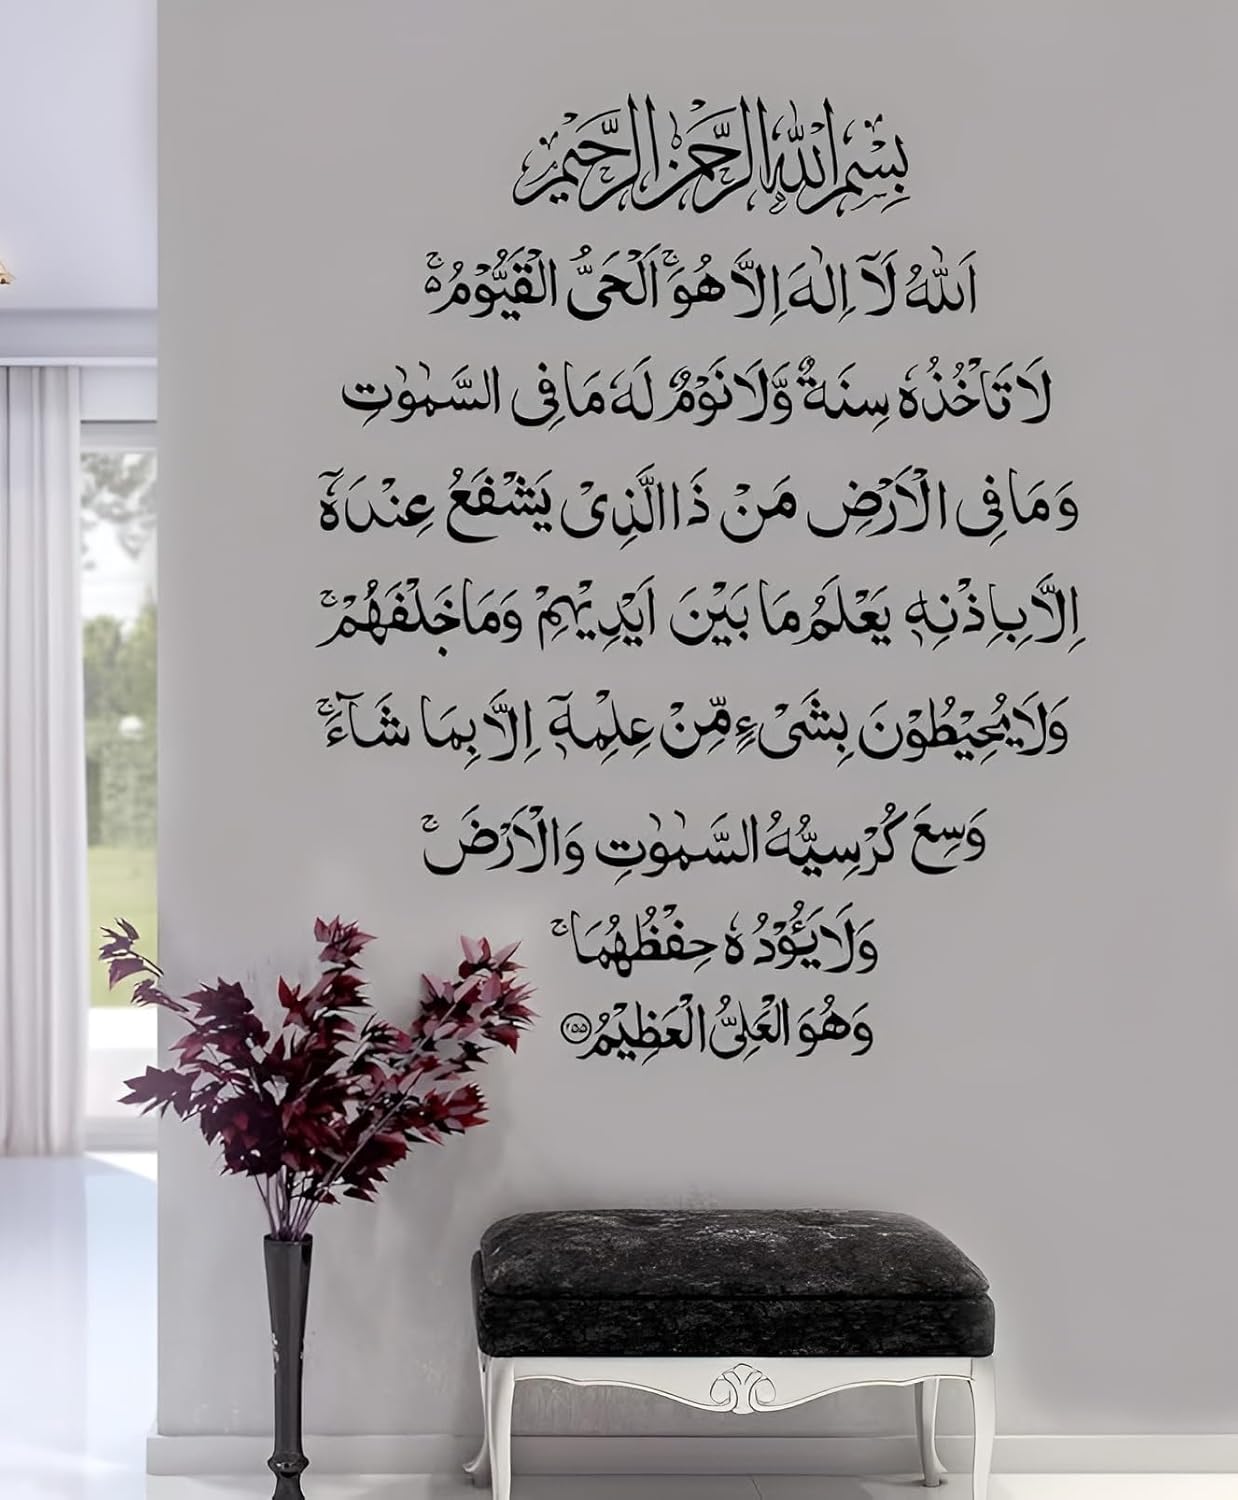 بِسْمِ اللّٰهِ الرَّحْمٰنِ الرَّحِيْمِ
اَللّٰهُ لَآ اِلٰهَ اِلَّا هُوَۚ اَلْحَىُّ الْقَيُّوْمُ ەۚ
لَا تَاْخُذُهٗ سِنَةٌ وَّلَا نَوْمٌ لَهٗ مَا فِى السَّمٰوٰتِ
وَمَا فِى الْاَرْضِ مَنْ ذَا الَّذِىْ يَشْفَعُ عِنْدَهٗٓ
اِلَّا بِاِذْنِهٖ يَعْلَمُ مَا بَيْنَ اَيْدِيْهِمْ وَمَا خَلْفَهُمْۚ
وَلَا يُحِيْطُوْنَ بِشَىْءٍ مِّنْ عِلْمِهٖٓ اِلَّا بِمَا شَآءَۚ
وَسِعَ كُرْسِيُّهُ السَّمٰوٰتِ وَالْاَرْضَۚ
وَلَا يَـُٔوْدُهٗ حِفْظُهُمَاۚ
وَهُوَ الْعَلِىُّ الْعَظِيْمُ ٢٥٥